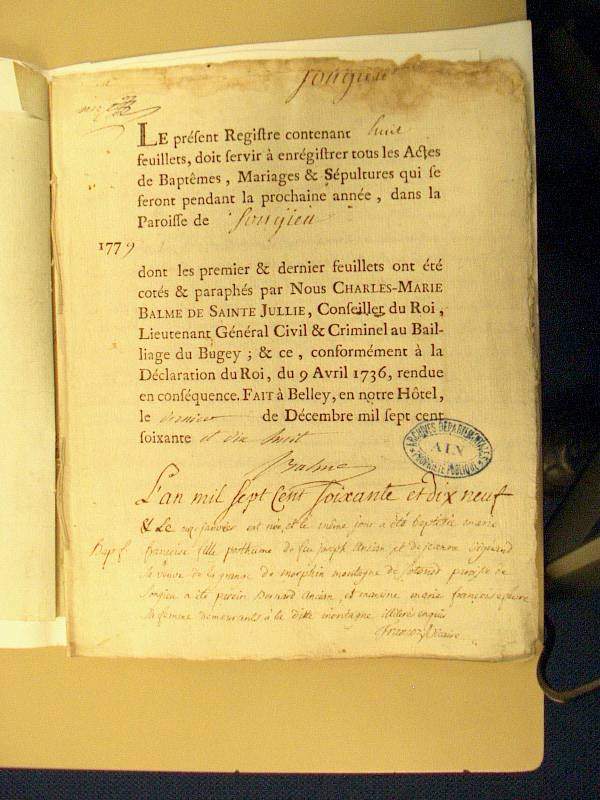 Songieu
LE présent Registre contenant huit
feuillets, doit servir à enrégistrer tous les Actes
de Baptêmes, Mariages & Sépultures qui se
feront pendant la prochaine année, dans la
Paroisse de Songieu
1779
dont les premier & dernier feuillets ont été
cotés & paraphés par Nous CHARLES-MARIE
BALME DE SAINTE JULLIE, Conseiller du Roi,
Lieutenant Général Civil & Criminel au Bail-
liage du Bugey; & ce, conformément à la
Déclaration du Roi, du 9 Avril 1736, rendue
en conséquence. FAIT à Belley, en notre Hôtel,
le dernier de Décembre mil sept cent
soixante et dix huit
Balme
ARCHIVES DÉPARTEMENTALES
AIN
PROPRIÉTÉ PUBLIQUE
L'an mil sept Cent soixante et dix neuf
& Le janvier est née, et le même jour a été baptisée marie
Bap f. françoise fille posthume de feu joseph Ancian, et de jeanne
sa veuve de la grange de morphin montagne de Sotonod paroisse de
Songieu a été parein Bernard Ancian, et maraine marie françoise
sa femme demeurants à la ditte montagne, illiterés enquis
vicaire